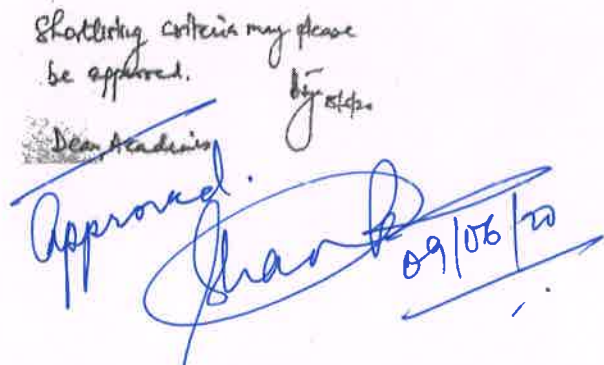 Shortlisting criteria may please
be approved.
8/6/20
Dean, Academics
Approved.
09/06/20